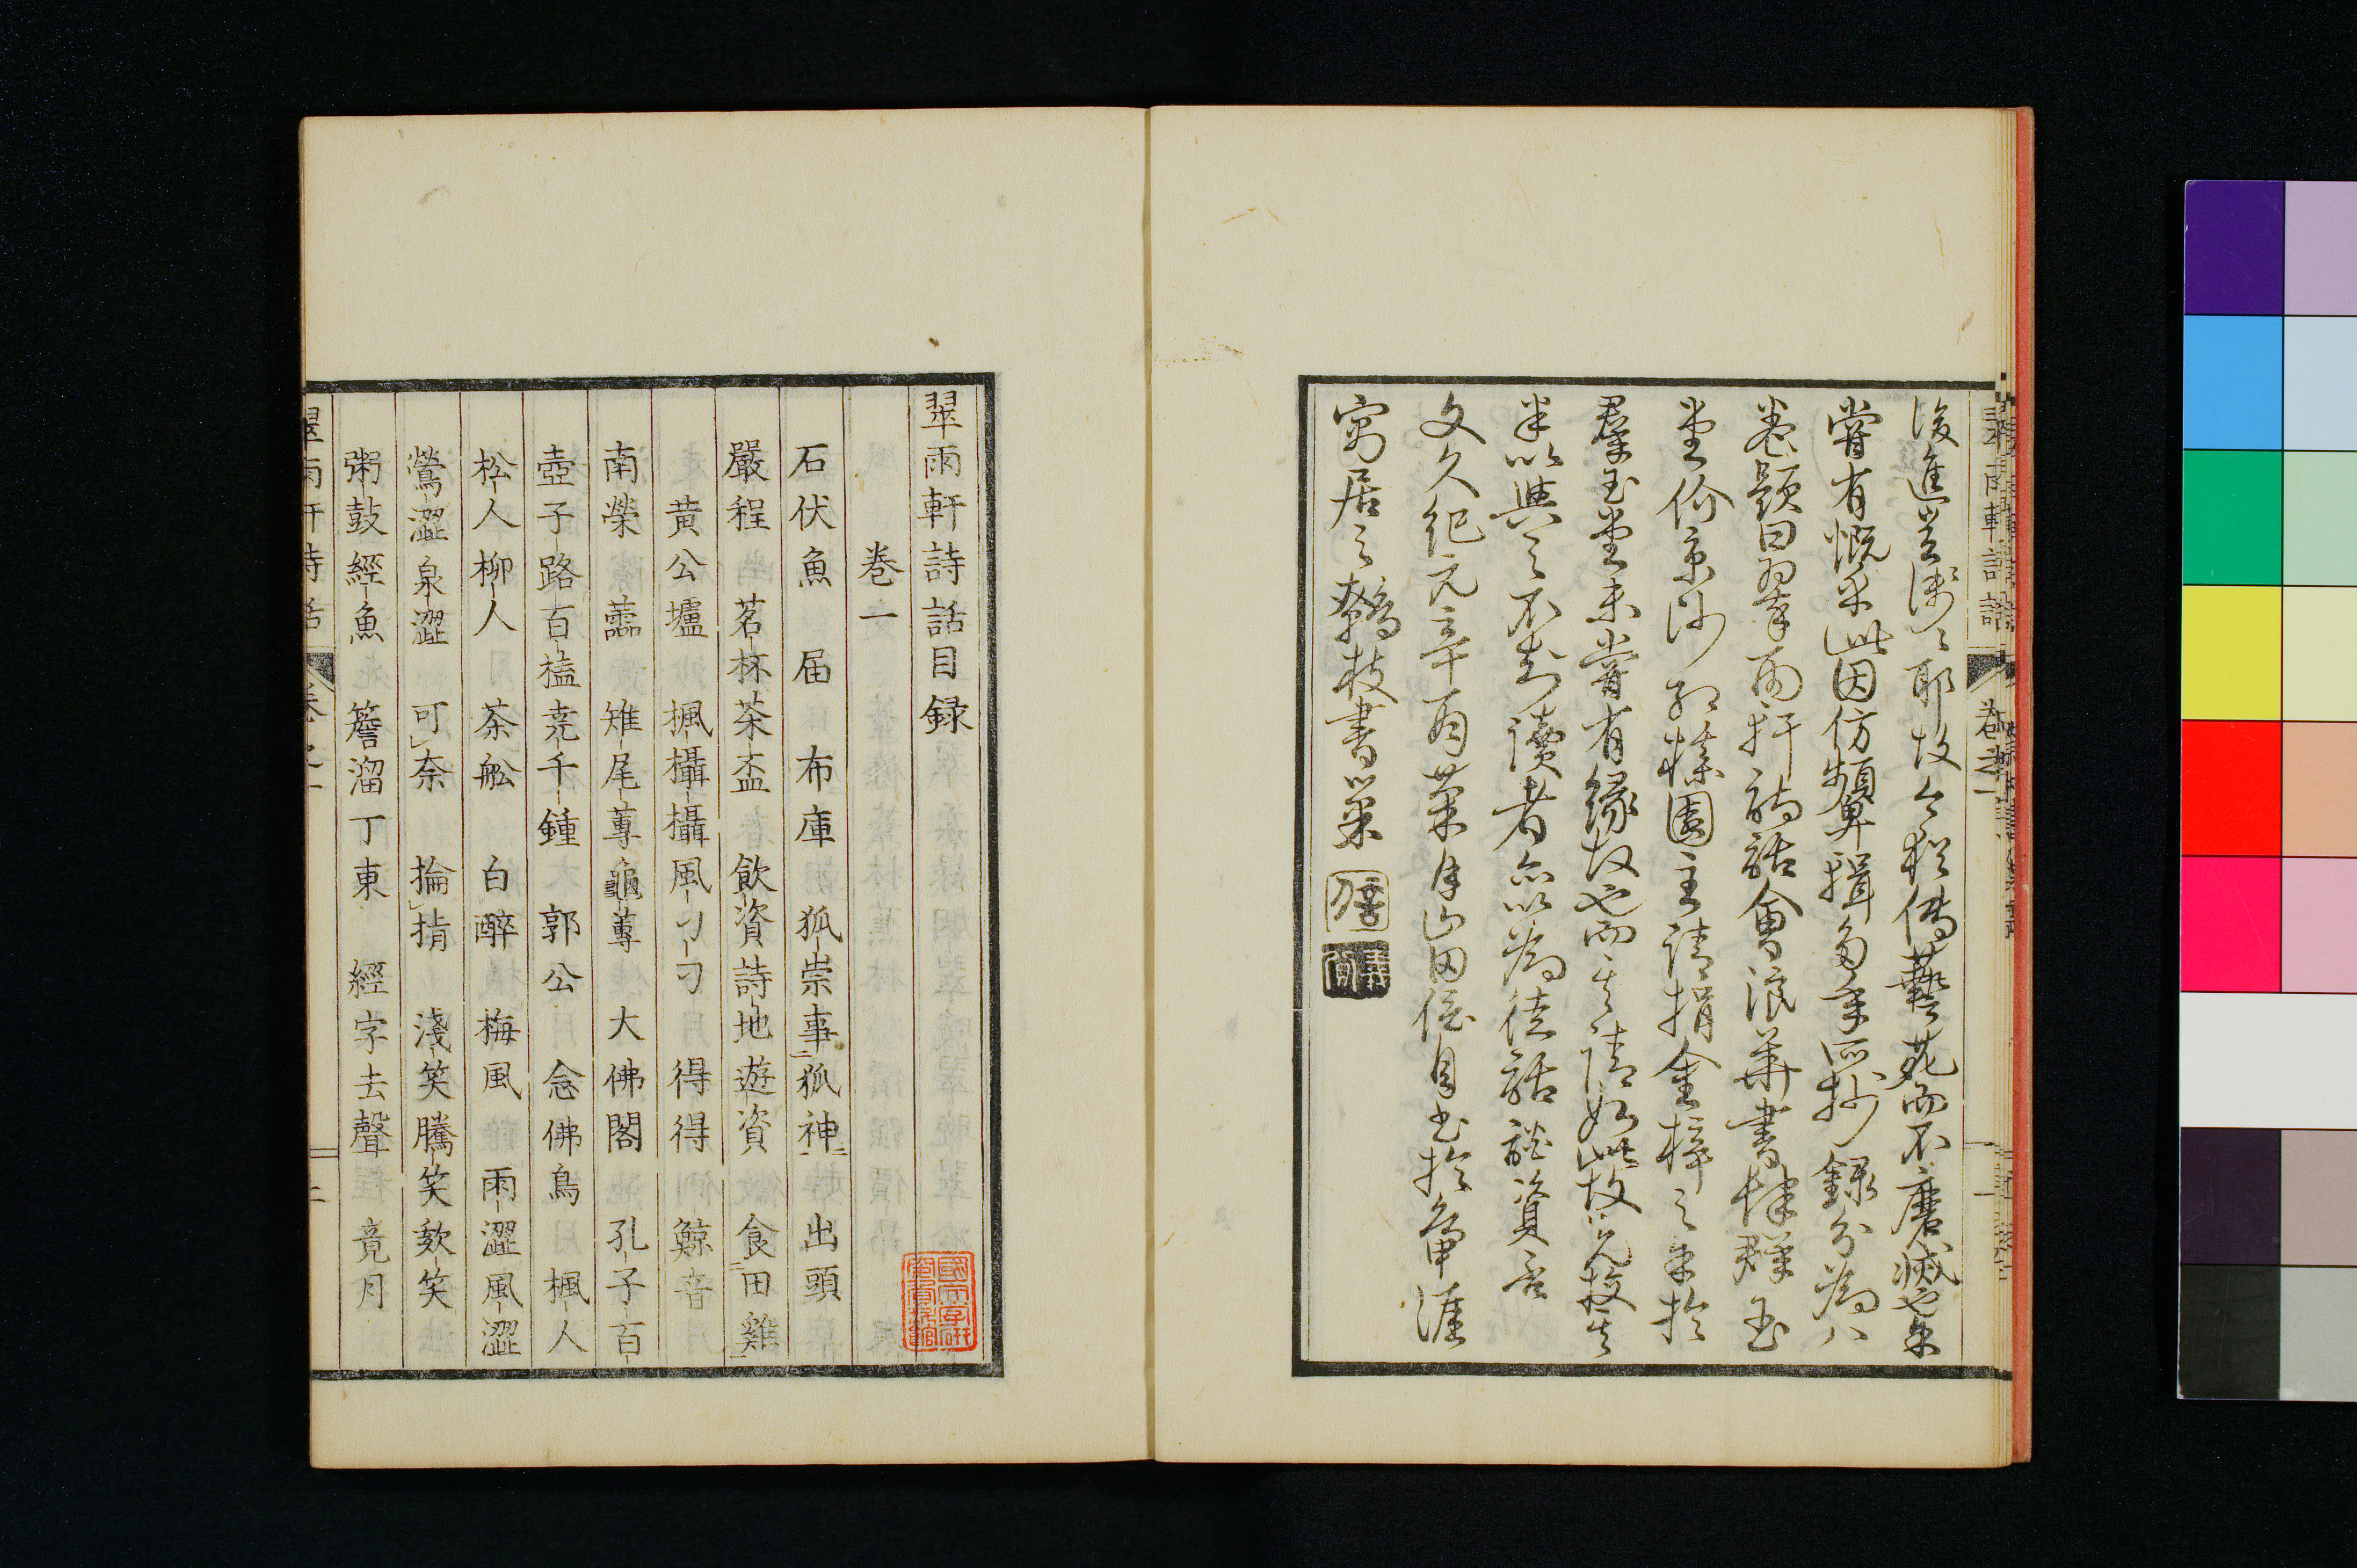 後進豈淺々耶故今猶傳藝苑而不磨滅也余
嘗有慨乎此因仿顰輯多年所抄錄分為八
卷題曰翠雨軒詩話會浪華書肆群玉
堂介京師
園主請捐金梓之余於
群玉堂未嘗有緣故也而其請如此故
余以與之不知讀者亦以為徒話談資否
文久紀元辛酉菊月山田信自書於鴨涯
寓居之鷦枝書巢
翠雨軒詩話
卷之一
翠雨軒詩話目録
卷一
石伏魚 届 布庫 狐祟事狐神 出頭
嚴程 茗杯茶盃 飲資詩地遊資 食田雞
黄公壚 楓攝攝風刁刁 得得 鯨音
南榮 蘦 雉尾蓴龜蓴 大佛閣 孔子百
壺子路百榼堯千鍾 郭公 念佛鳥 楓人
松人柳人 茶舩 白醉 梅風 雨澀風澀
鶯澀泉澀 可奈 掄揹 淺笑騰笑欬笑
粥鼓經魚 簷溜丁東 經字去聲 竟月
翠雨軒詩話 卷之一